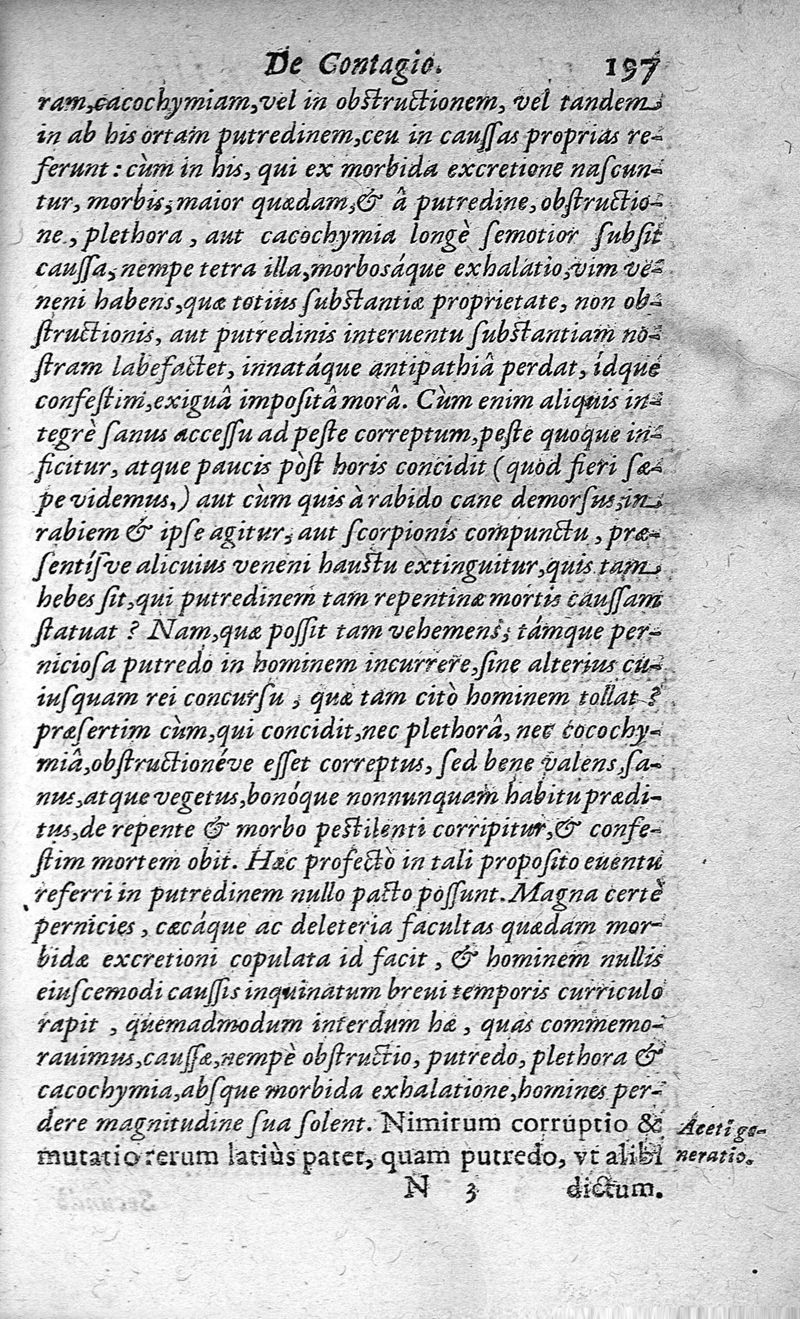 De Contagio. 197
ram, cacochymiam, vel in obstructionem, vel tandem
in ab his ortam putredinem, ceu in caussas proprias re-
ferunt: cùm in his, qui ex morbida excretione nascun-
tur, morbis, maior quædam, & â putredine, obstructio-
ne, plethora, aut cacochymia longè semotior subsit
caussa, nempe tetra illa, morbosáque exhalatio, vim ve-
neni habens, quæ totius substantiæ proprietate, non ob-
structionis, aut putredinis interuentu substantiam no-
stram labefactet, innatáque antipathiâ perdat, ídque
confestim, exiguâ impositâ morâ. Cùm enim aliquis in-
tegrè sanus accessu ad peste correptum, peste quoque in-
ficitur, atque paucis pòst horis concidit (quod fieri sæ-
pe videmus,) aut cùm quis à rabido cane demorsus, in
rabiem & ipse agitur, aut scorpionis compunctu, præ-
sentísve alicuius veneni haustu extinguitur, quis tam
hebes sit, qui putredinem tam repentinæ mortis caussam
statuat? Nam, quæ possit tam vehemens, támque per-
niciosa putredo in hominem incurrere, sine alterius cu-
iusquam rei concursu, quæ tam citò hominem tollat?
præsertim cùm, qui concidit, nec plethorâ, nec cocochy-
miâ, obstructionéve esset correptus, sed bene valens, sa-
nus, atque vegetus, bonóque nonnunquam habitu prædi-
tus, de repente & morbo pestilenti corripitur, & confe-
stim mortem obit. Hæc profectò in tali proposito euentu
referri in putredinem nullo pacto possunt. Magna certè
pernicies, cæcáque ac deleteria facultas quædam mor-
bidæ excretioni copulata id facit, & hominem nullis
eiuscemodi caussis inquinatum breui temporis curriculo
rapit, quemadmodum interdum hæ, quas commemo-
rauimus, caussæ, nempè obstructio, putredo, plethora &
cacochymia, absque morbida exhalatione, homines per-
dere magnitudine sua solent. Nimirum corruptio &
mutatio rerum latiùs patet, quam putredo, vt alibi
Aceti ge-
neratio.
N 3 dictum.